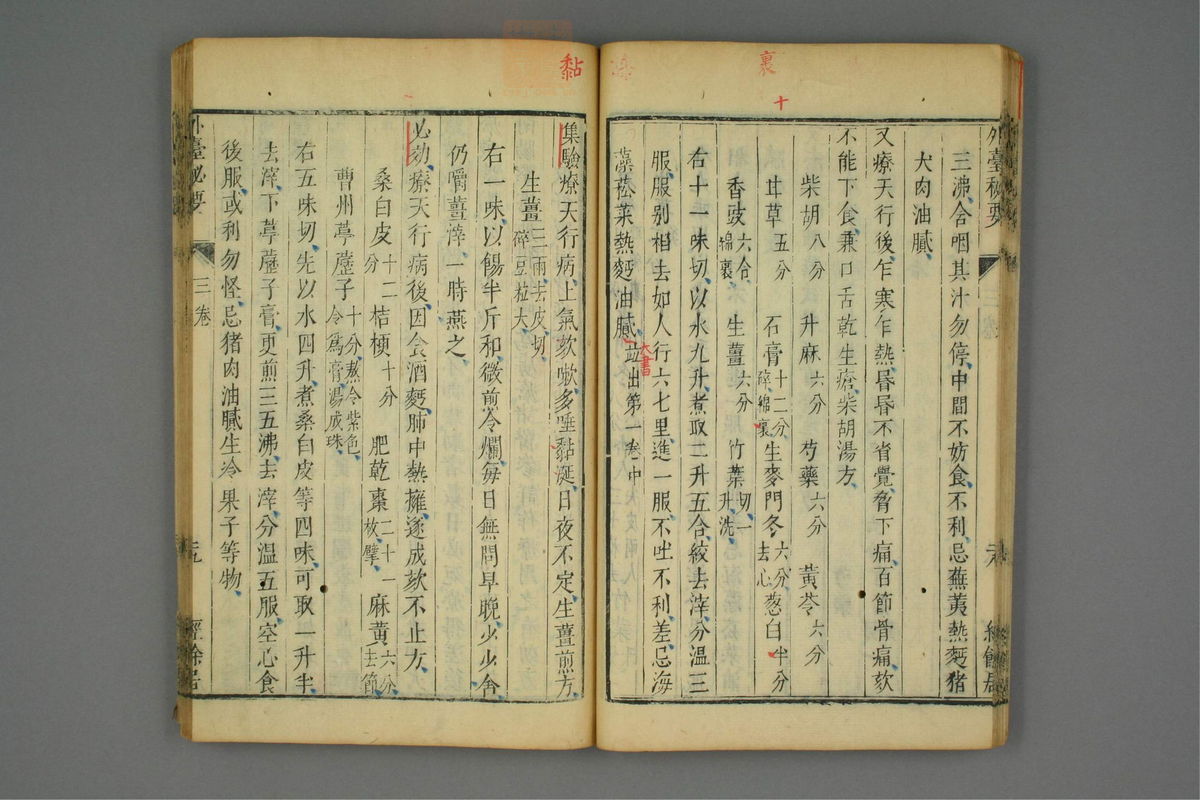 裏
十
外臺秘要
三沸合咽其汁勿停中間不妨食不利忌蕪荑熱麪猪
犬肉油膩
又療天行後乍寒乍熱昏昏不省覺脅下痛百節骨痛欬
不能下食兼口舌乾生瘡柴胡湯方
柴胡八分 升麻六分 芍藥六分 黃芩六分
甘草五分 石膏十二分碎綿裹 生麥門冬六分去心 葱白半分
香豉六合綿裹 生薑六分 竹葉切一升洗
右十一味切以水九升煮取二升五合絞去滓分溫三
服服别相去如人行六七里進一服不吐不利差忌海
藻菘菜熱麪油膩並出第一卷中
大書
黏
集驗療天行病上氣欬嗽多唾黏涎日夜不定生薑煎方
生薑三兩去皮切碎豆粒大
右一味以餳半斤和微煎令爛每日無問早晚少少含
仍嚼薑滓一時嚥之
必効療天行病後因食酒麪肺中熱擁遂成欬不止方
桑白皮十二分 桔梗十分 肥乾棗二十一枚擘 麻黃六分去節
曹州葶藶子十分熬令紫色令爲膏湯成珠
右五味切先以水四升煮桑白皮等四味可取一升半
去滓下葶藶子膏更煎三五沸去滓分溫五服空心食
後服或利勿怪忌猪肉油膩生冷果子等物
外臺祕要
三卷
經餘居